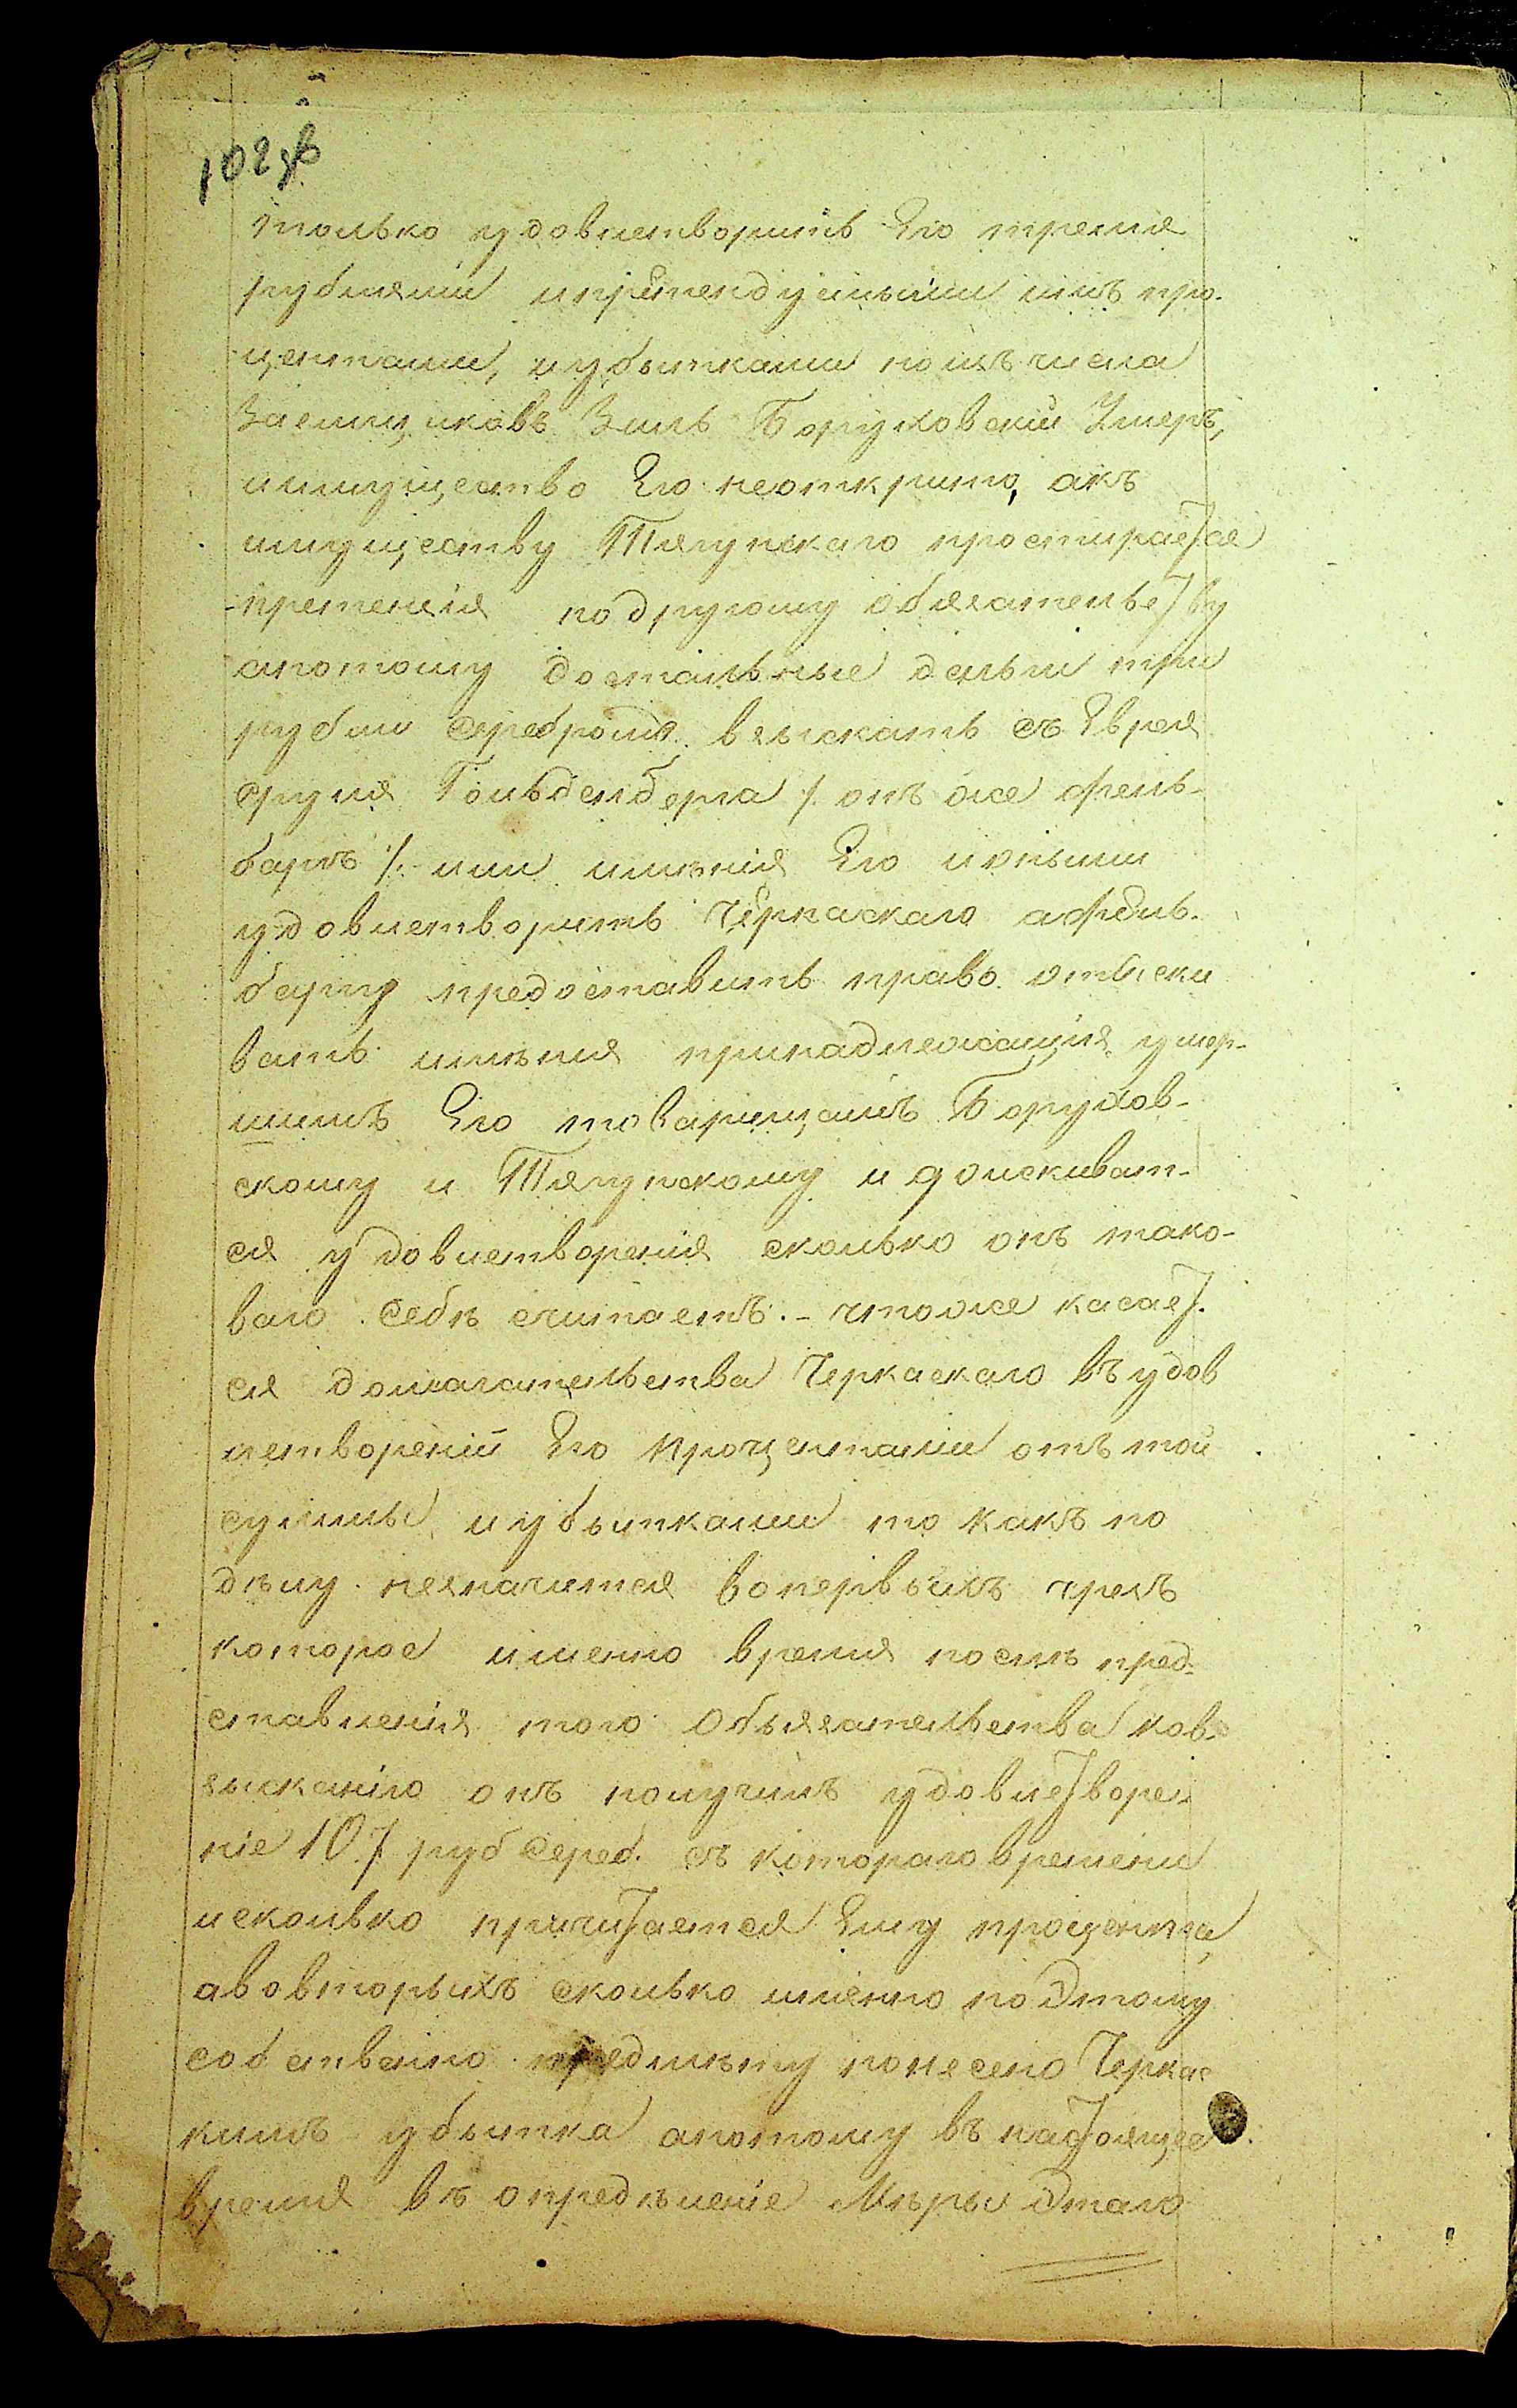 102 об
только удовлетворить Его тремя
рублями и претендуимыми имъ про-
центами, и убытками поизъ числа
Заемщиковъ Зиль Боруховский Умеръ,
имущество Его неоткрито, акъ
имуществу Тягунскаго простирается
претенсия по другому обязательству
апотому достальные деньги три
рубли серебромъ взыскать съ Еврея
сруля Гольденберга /: онъ же фель-
баръ :/ или имѣнія Его и оными
удовлетворить Черкаскаго а фель-
бару предоставить право отыски
вать имѣния принадлежащия умер-
шимъ Его товарищамъ Борухов-
скому и Тягунскому и доискиват-
ся удовлетворения сколько онъ тако-
ваго себѣ считаетъ. - чтоже касает-
ся домагательства Черкаскаго въ удов
летворений Его процентами отъ той
суммы и убытками то какъ по
дѣлу незначится вопервыхъ чрезъ
которое именно время послѣ пред-
ставления того Обязательства ковз-
ысканію онъ получилъ удовлетворе
ніе 107 руб сереб. съ котораго времени
исколько причитается Ему процента,
авовторыхъ сколько именно по Этому
собственно предмѣту понесено Черкас
кимъ убытка апотому въ настоящее
время въ определеніе Мѣры Этаго